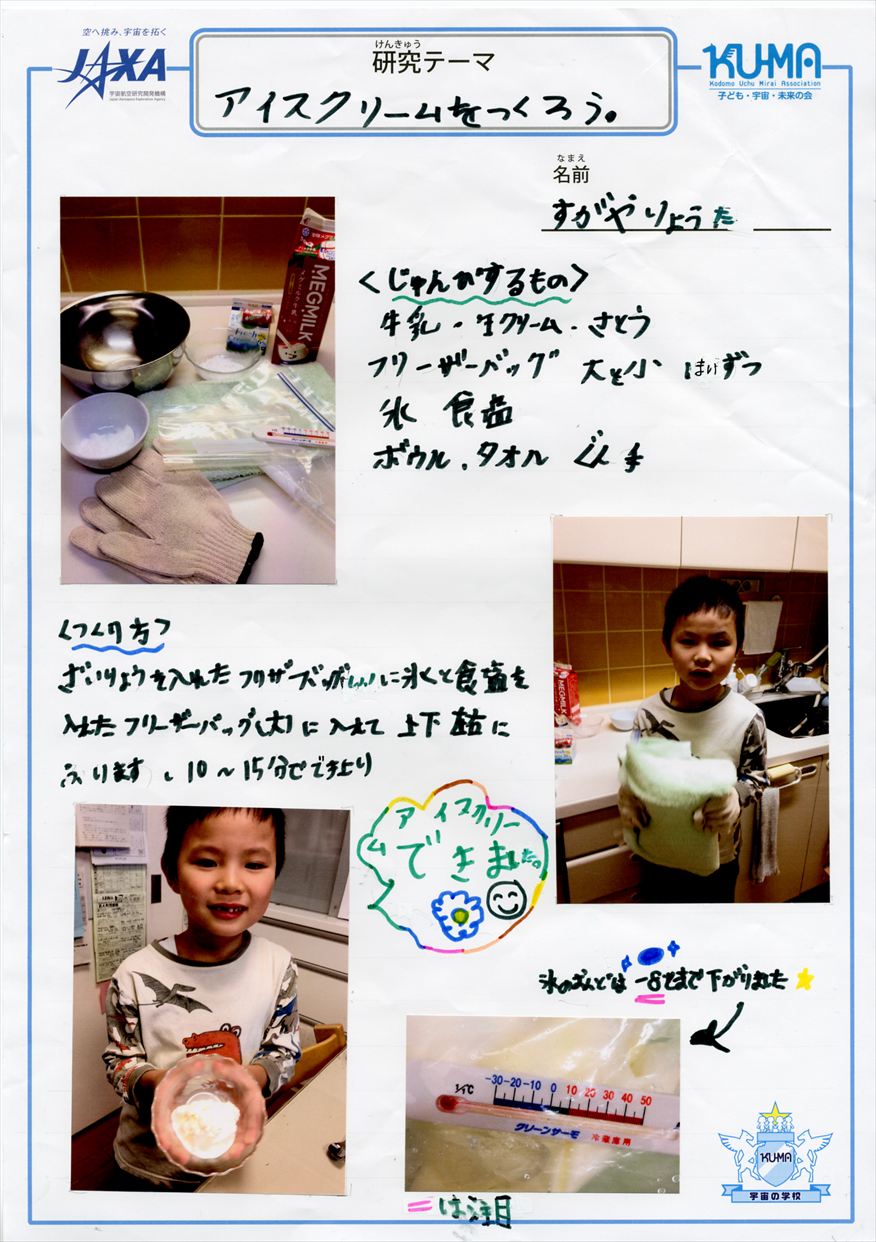 空へ挑み、宇宙を拓く
JAXA
宇宙航空研究開発機構
Japan Aerospace Exploration Agency
けんきゅう
研究テーマ
アイスクリームをつくろう。
KU-MA
Kodomo Uchu Mirai Association
子ども・宇宙・未来の会
なまえ
名前
すがやりょうた
MEGMILK
メグミルク牛乳
<じゅんびするもの>
牛乳・生クリーム・さとう
フリーザーバッグ 大と小 1まいずつ
氷 食塩
ボウル、タオル ぐん手
<つくり方>
ざいりょうを入れた フリーザーバッグ(小)に氷と食塩を
入れたフリーザーバッグ(大)に入れて 上下左右に
ふります、10〜15分でできあがり
MEGMILK
アイスクリー
ム
できました。
氷のおんどは -8℃まで下がりました
-30 -20 -10 0 10 20 30 40 50
クリーンサーモ 冷蔵庫用
=は注目
KU-MA
宇宙の学校